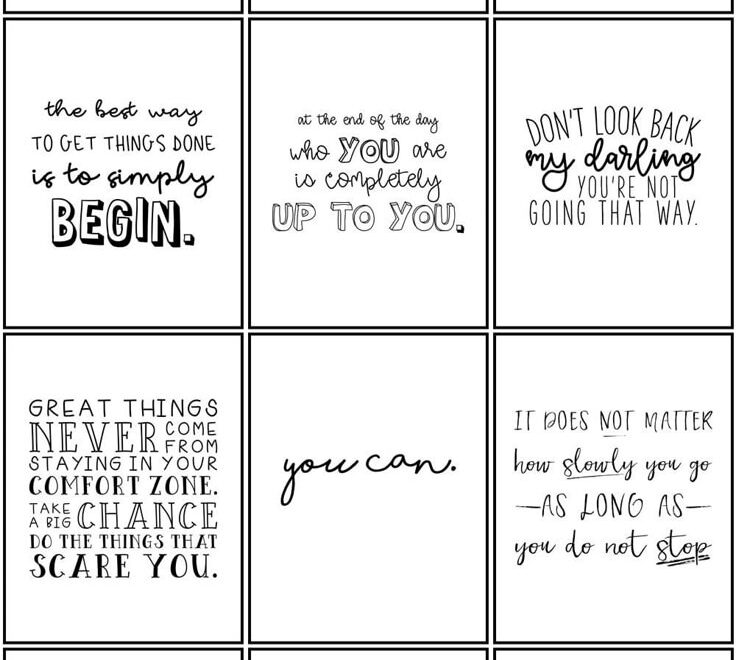 the best way
TO GET THINGS DONE
is to simply
BEGIN.
at the end of the day
who YOU are
is completely
UP TO YOU.
DON'T LOOK BACK
my darling
YOU'RE NOT
GOING THAT WAY.
GREAT THINGS
NEVER COME FROM
STAYING IN YOUR
COMFORT ZONE.
TAKE A BIG CHANCE
DO THE THINGS THAT
SCARE YOU.
you can.
IT DOES NOT MATTER
how slowly you go
—AS LONG AS—
you do not stop